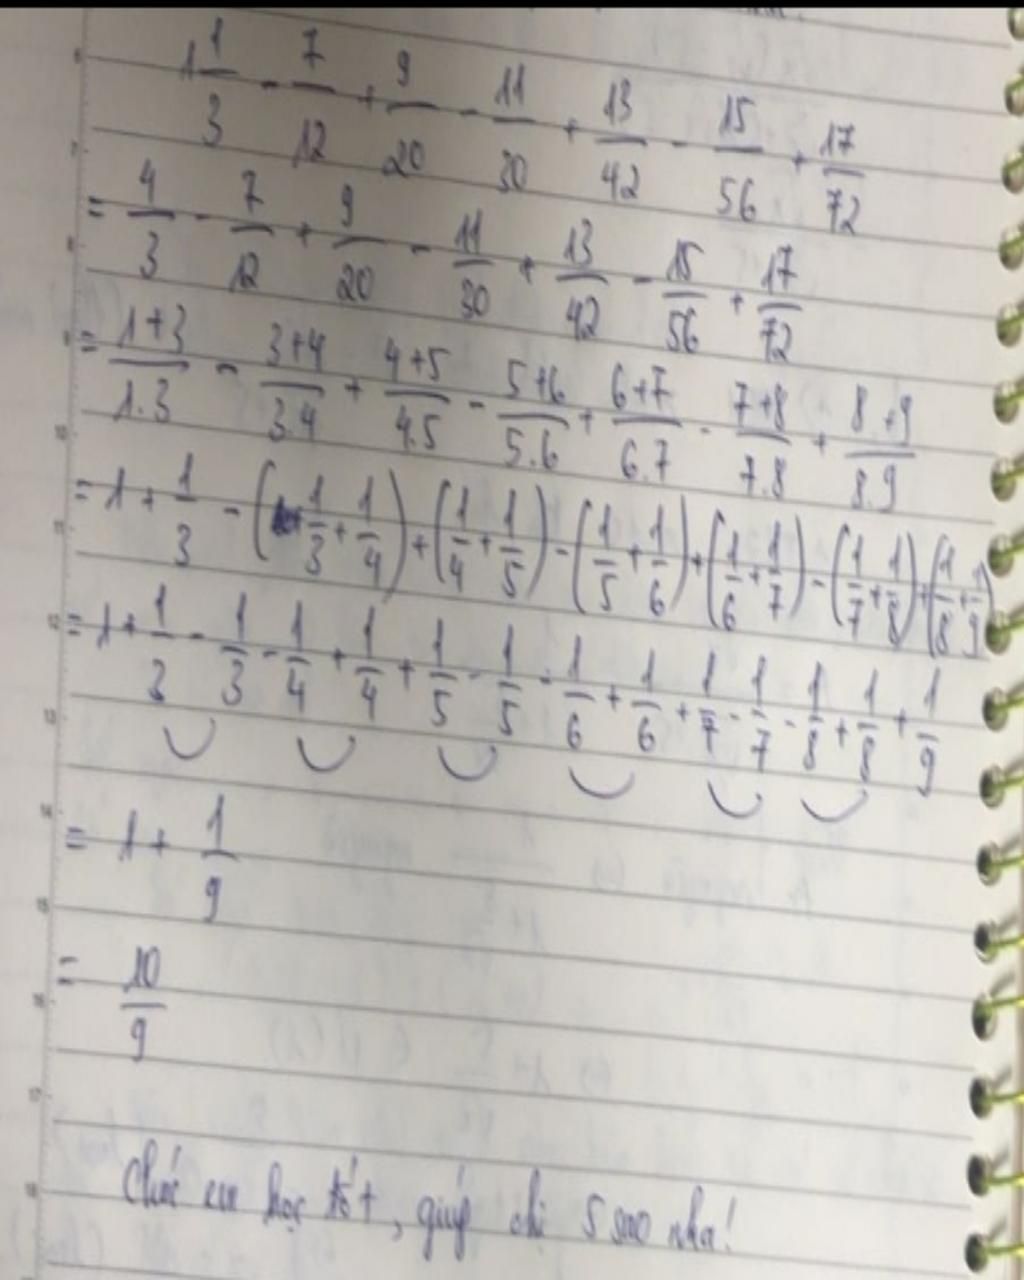 1 1/3 - 7/12 + 9/20 - 11/30 + 13/42 - 15/56 + 17/72
= 4/3 - 7/12 + 9/20 - 11/30 + 13/42 - 15/56 + 17/72
= 1+3/1.3 - 3+4/3.4 + 4+5/4.5 - 5+6/5.6 + 6+7/6.7 - 7+8/7.8 + 8+9/8.9
= 1 + 1/3 - (1/3 + 1/4) + (1/4 + 1/5) - (1/5 + 1/6) + (1/6 + 1/7) - (1/7 + 1/8) + (1/8 + 1/9)
= 1 + 1/3 - 1/3 - 1/4 + 1/4 + 1/5 - 1/5 - 1/6 + 1/6 + 1/7 - 1/7 - 1/8 + 1/8 + 1/9
= 1 + 1/9
= 10/9
Chúc em học tốt, giúp chị 5 sao nha!